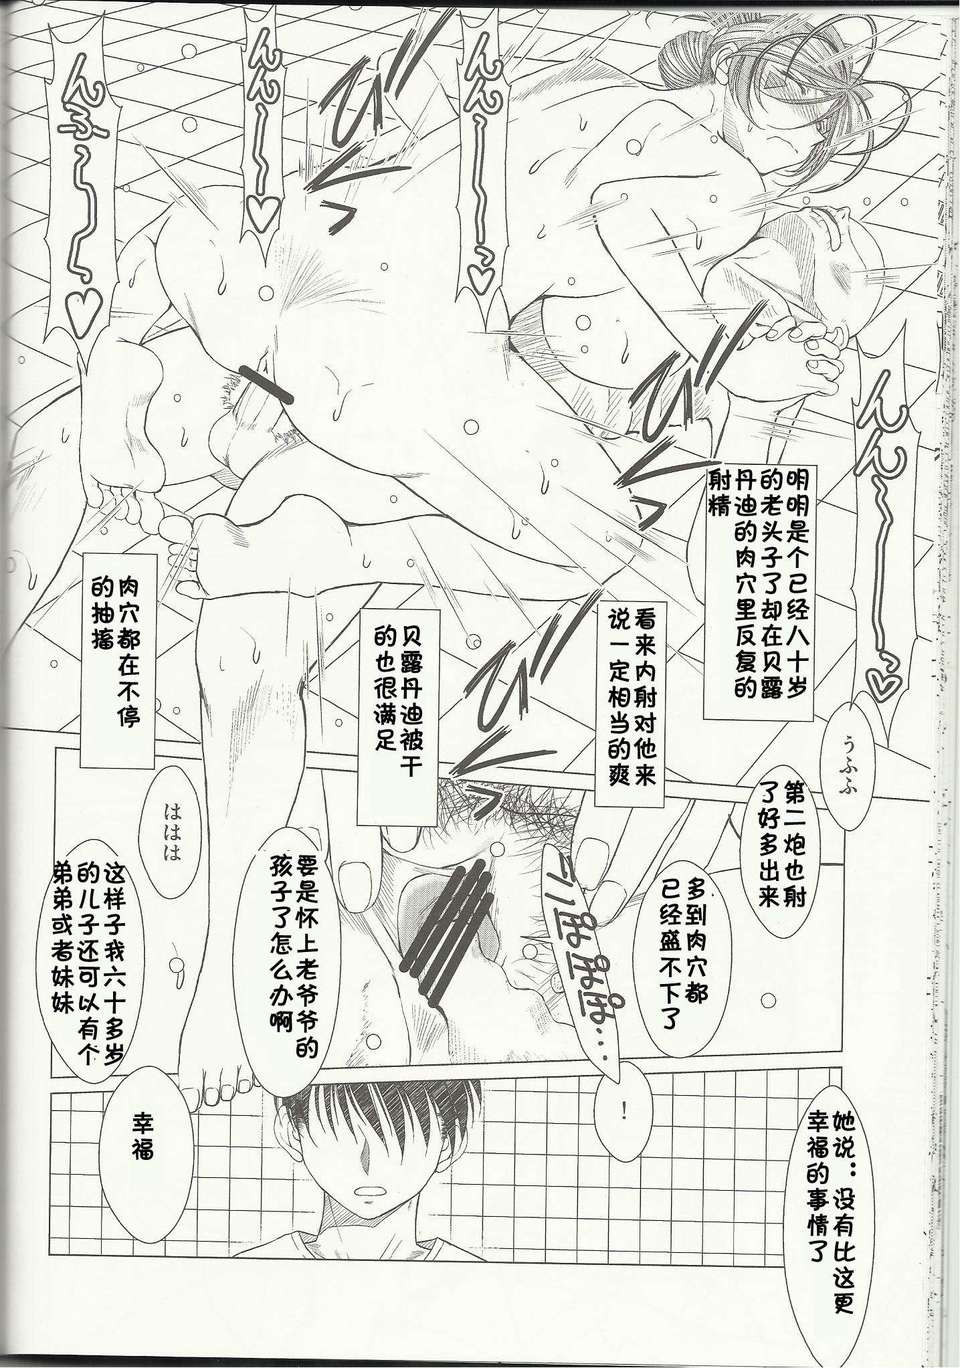 んふ～～っ♡
んん～～♡
んん～～っ♡
んん～～っ♡
明明是个已经八十岁
的老头子了却在贝露
丹迪的肉穴里反复的
射精
看来内射对他来
说一定相当的爽
贝露丹迪被干
的也很满足
肉穴都在不停
的抽搐
うふふ
第二炮也射
了好多出来
多到肉穴都
已经盛不下了
要是怀上老爷爷的
孩子了怎么办啊
ははは
这样子我六十多岁
的儿子还可以有个
弟弟或者妹妹
她说：没有比这更
幸福的事情了
！
幸福